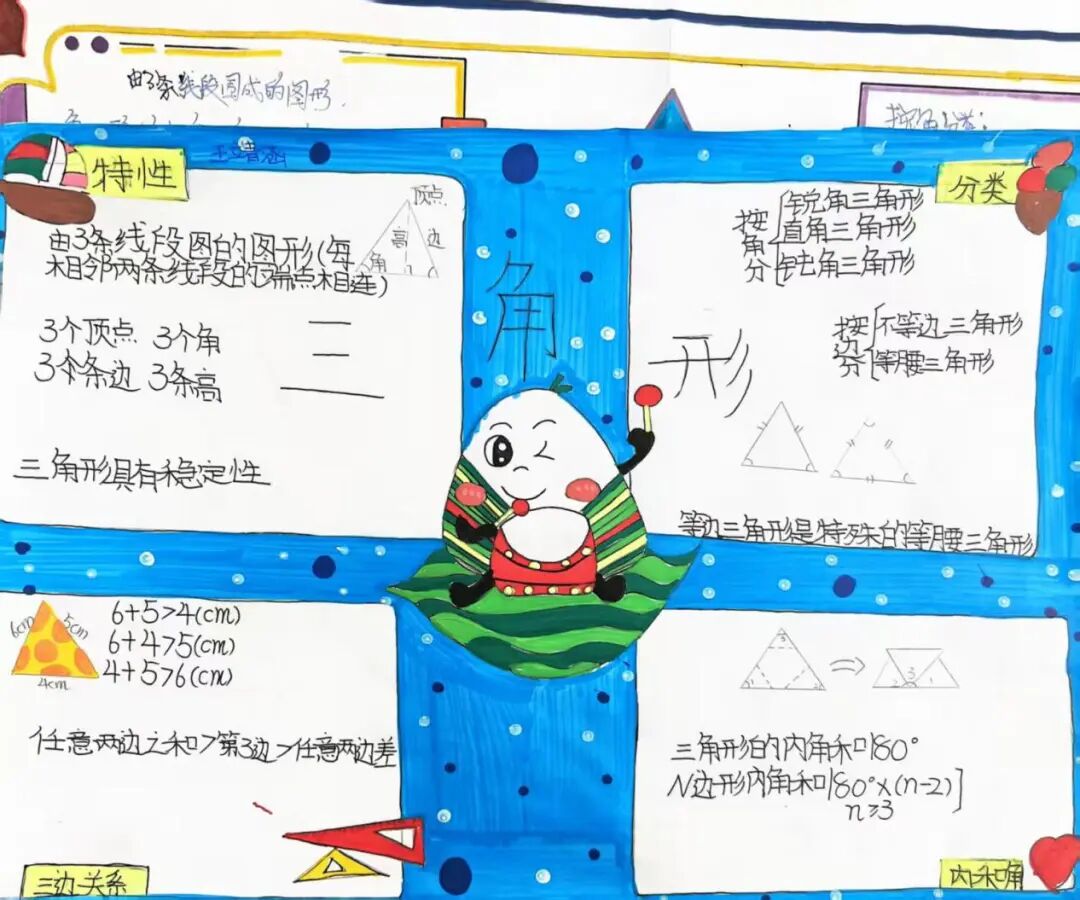 由3条线段围成的图形.
特性
顶点
高
边
角
由3条线段图的图形(每
相邻两条线段的端点相连)
3个顶点 3个角
3个条边 3条高
三角形具有稳定性
三
角
形
分类
按角分
锐角三角形
直角三角形
钝角三角形
按边分
不等边三角形
等腰三角形
等边三角形是特殊的等腰三角形
6cm
5cm
4cm
6+5>4(cm)
6+4>5(cm)
4+5>6(cm)
任意两边之和>第3边>任意两边差
三边关系
3
1
2
⇒
3
2
1
三角形的内角和180°
N边形内角和180°×(n-2)]
n≥3
内和角